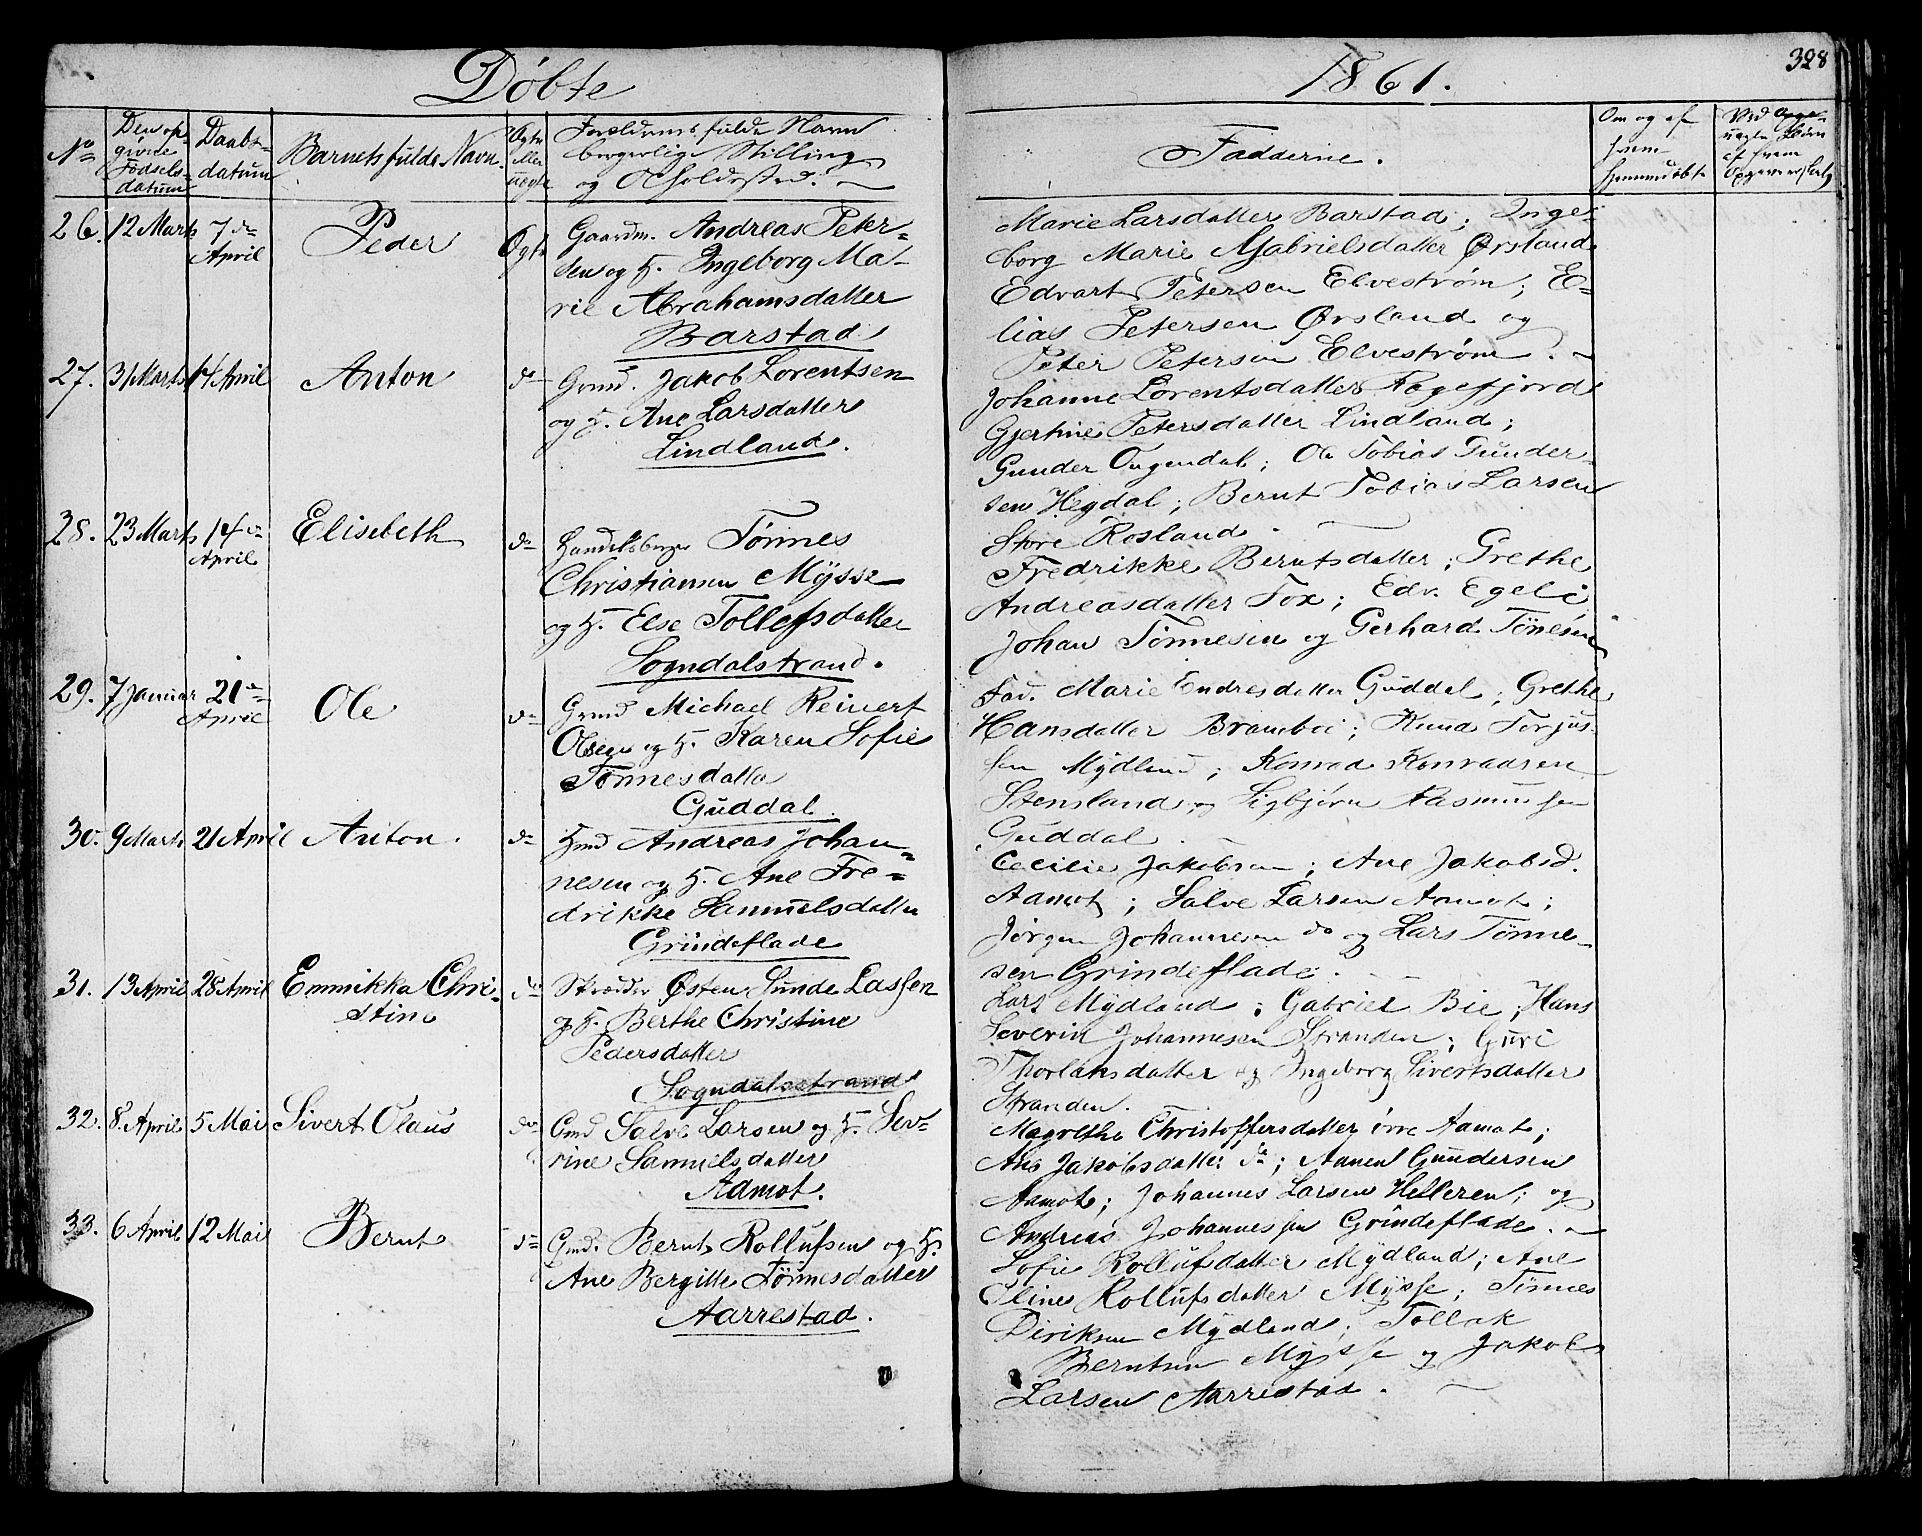 Döbte
1861.
328
No
Den op
givne
Födsels-
datum
Daabs-
datum
Barnets fulde Navn
Ægte
eller
uægte
Forældrenes fulde Navn
borgerlige Stilling
og Opholdssted.
Fadderne.
Om og af
hvem
hjemmedøbt
Ved
uægte
af hvem
26. 12 Marts 7de Peder Ægte Gaardm. Andreas Peter-
April
sen og H. Ingeborg Ma-
rie Abrahamsdatter
Barstad
Marie Larsdatter Barstad; Inge-
borg Marie Gabrielsdatter Ørsland
Edvart Petersen Elvestrøm; E-
lias Petersen Ørsland og
Peter Petersen Elvestrøm.
27. 31 Marts 14 April Anton do Grmd. Jakob Lorentsen
og H. Ane Larsdatter
Lindland.
Johanne Lorentsdatter Rægefjord
Gjertine Petersdatter Lindland;
Gunder Ougendal; Ole Tobias Gunder-
sen Hegdal; Bernt Tobias Larsen
Store Rosland.
28. 23 Marts 14de Elisebeth do Handelsborger Tönnes
April
Christiansen Mÿsse
og H. Else Tollefsdatter
Sogndalstrand.
Fredrikke Berntsdatter; Grethe
Andreasdatter Fox; Edv. Egeli
Johan Tönnesen og Gerhard Tönesen
29. 7 Januar 21de Ole do Grmd Michael Reinert
April
Olsen og H. Karen Sofie
Tönnesdatter
Guddal.
Fad. Marie Endresdatter Guddal; Grethe
Hansdatter Bramboi; Knud Torjus-
sen Mÿdland; Konrad Konradsen
Stensland og Sigbjørn Rasmussen
Guddal
30. 9 Marts 21 April Anton. do Gmd Andreas Johan-
nesen og H. Ane Fre-
drikke Samuelsdatter
Grindeflade
Cecilie Jakobsen; Ane Jakobsd.
Aamot; Salve Larsen Aamot;
Jørgen Johannesen do og Lars Tönne-
sen Grindeflade.
31. 13 April 28 April Emmikka Chri- do Skrædder Østen Sunde Lassen
stine
og H. Berthe Christine
Pedersdatter
Sogndalsstrand
Lars Mÿdland; Gabriel Bie; Hans
Severin Johannesen Stranden; Guri
Thorlaksdatter og Ingeborg Sivertsdatter
Stranden.
32. 8 April 5 Mai Sivert Olaus do Gmd Salve Larsen og H. Sev-
rine Samuelsdatter
Aamot.
Magrethe Christoffersdatter övre Aamot;
Ane Jakobsdatter do; Aanen Gundersen
Aamot; Johannes Larsen Helleren; og
Andreas Johannessen Grindeflade.
33. 6 April 12 Mai Bernt do Gmd. Bernt Rollufsen og H.
Ane Bergitte Tönnesdatter
Aarrestad.
Sofie Rollufsdatter Mÿdland; Ane
Eline Rollufsdatter Mÿsse; Tönnes
Diriksen Mÿdland; Tollak
Berntsen Mysse og Jakob
Larsen Aarrestad.